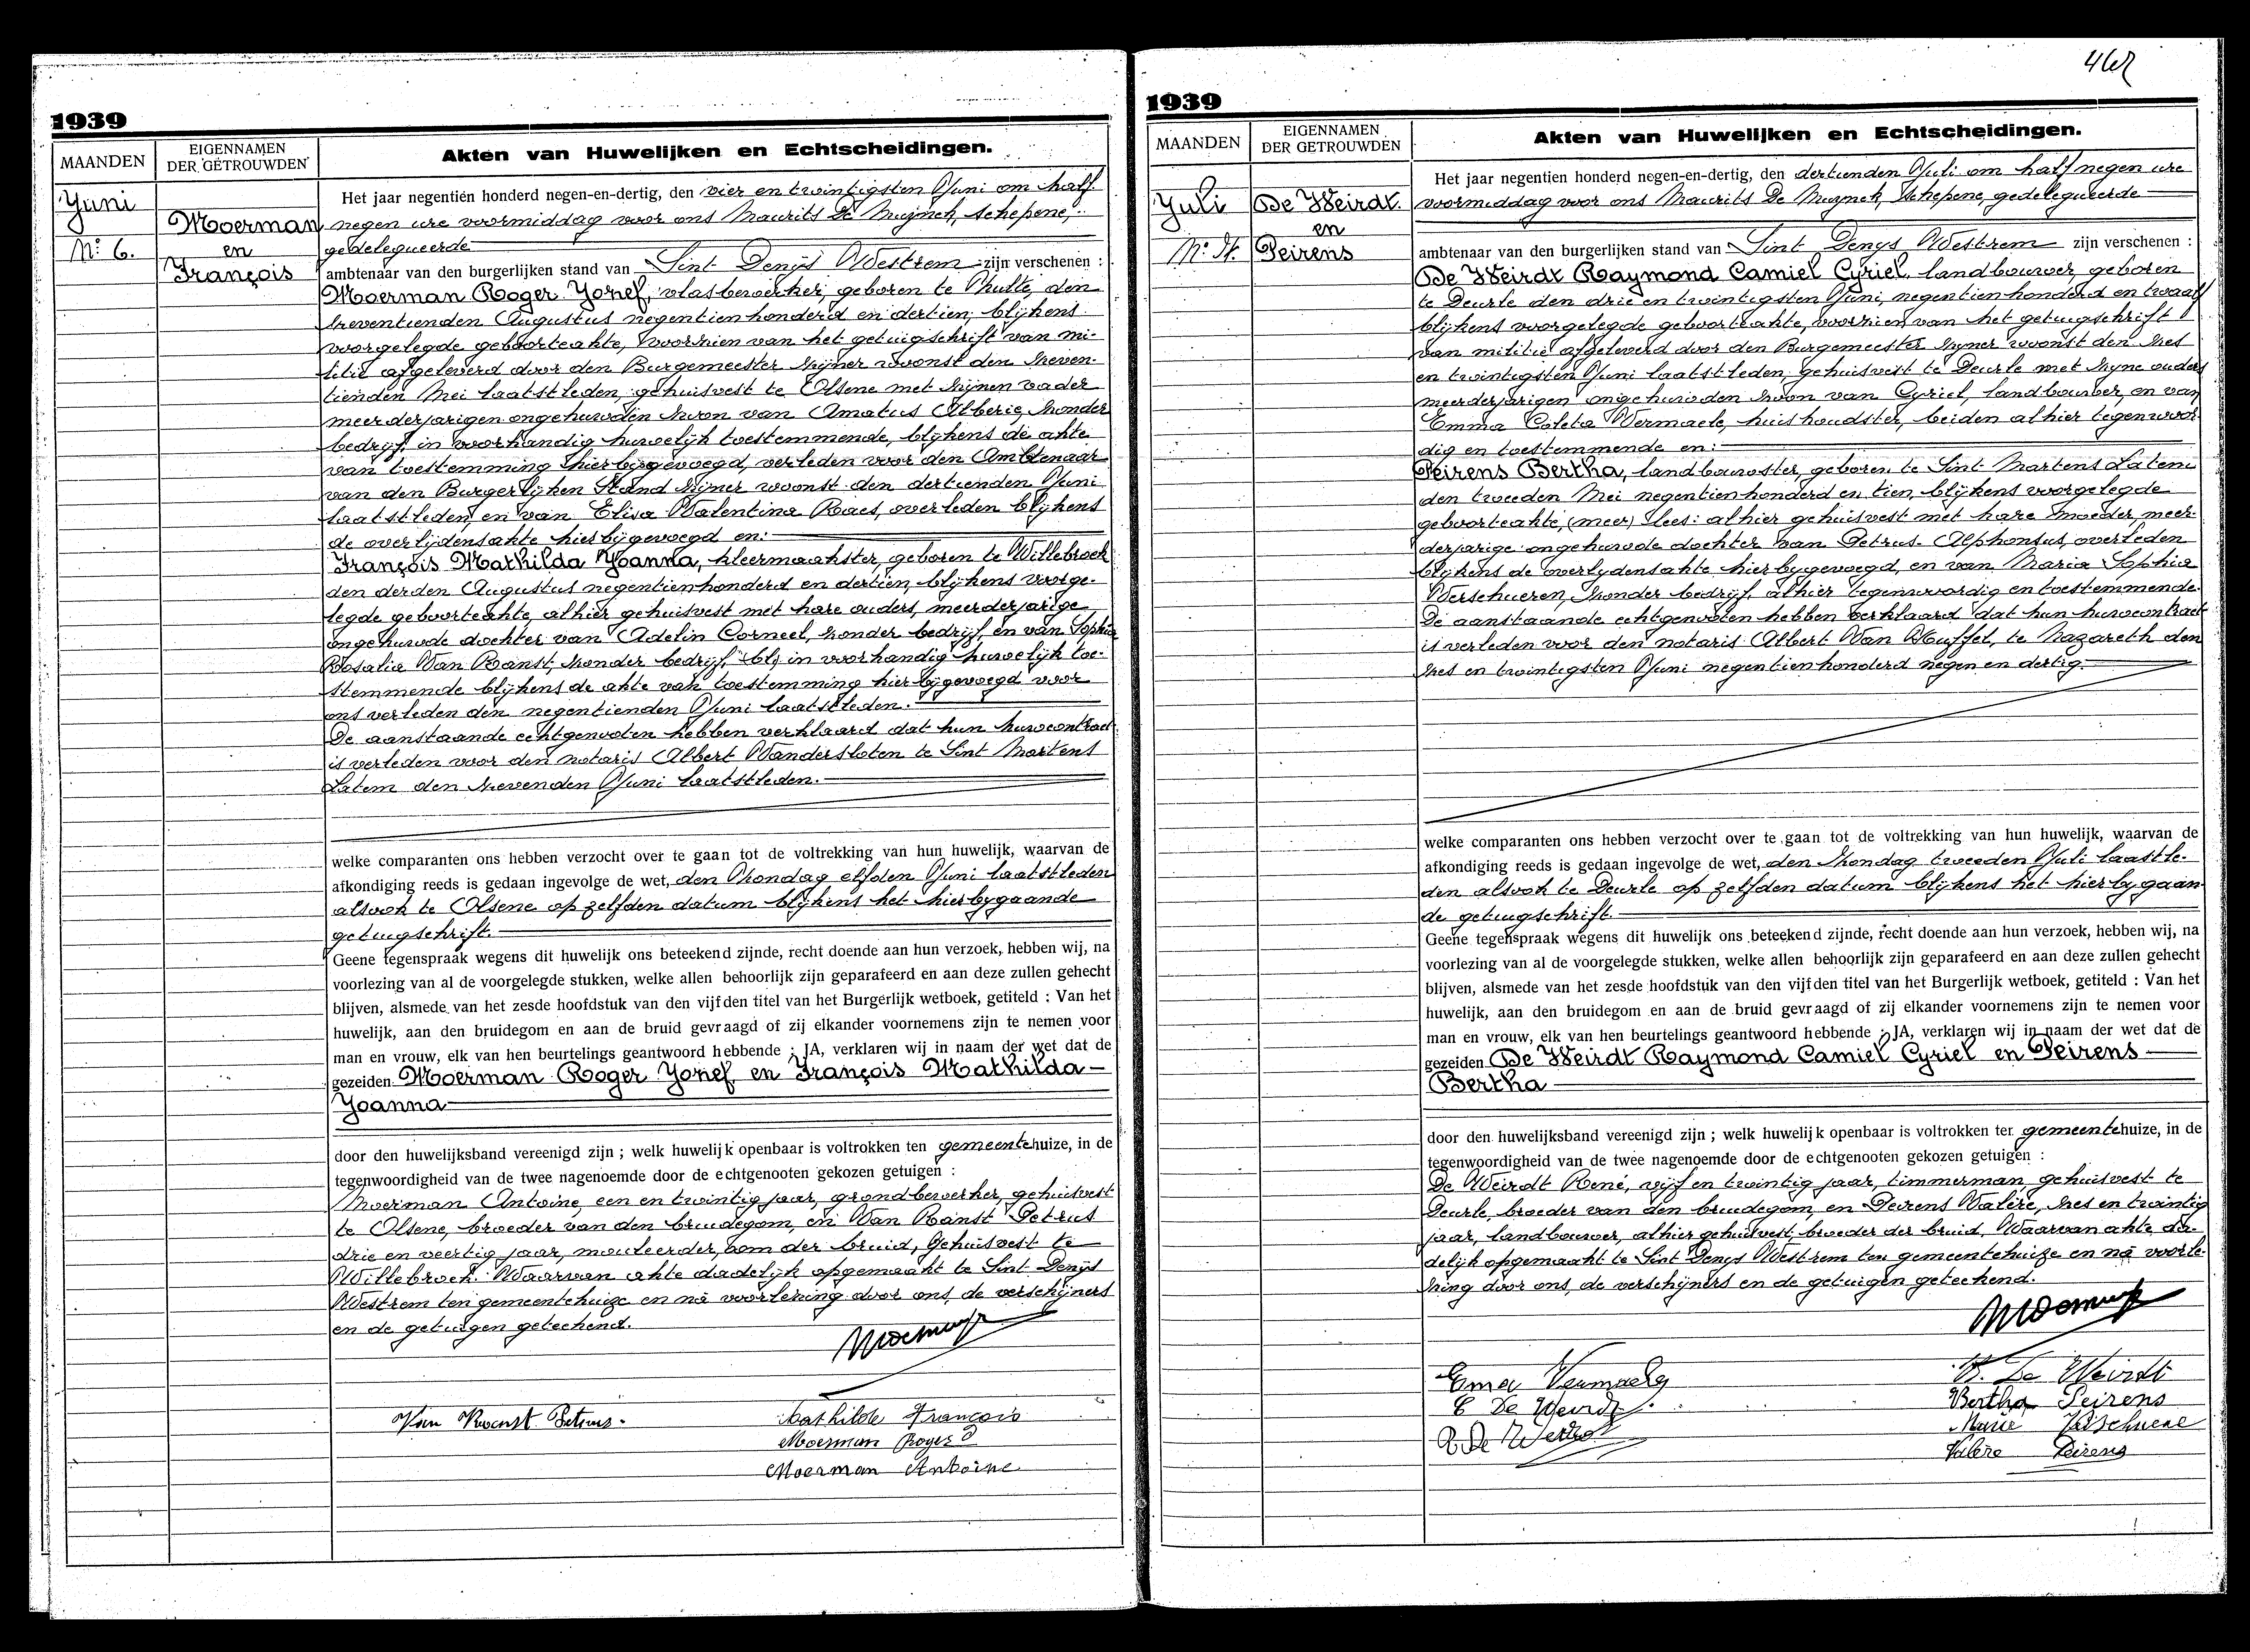 1939
MAANDEN
EIGENNAMEN
DER GETROUWDEN
Akten van Huwelijken en Echtscheidingen.
Juni
Moerman
en
François
N: 6.
Het jaar negentien honderd negen-en-dertig, den vier en twintigsten Juni om half
negen ure voormiddag voor ons Maurits De Muynck, schepene,
gedelegueerde
ambtenaar van den burgerlijken stand van Sint Denijs Westrem zijn verschenen :
Moerman Roger Jozef, vlasbewerker, geboren te Hulte, den
zeventienden Augustus negentienhonderd en dertien, blijkens
voorgelegde geboorteakte, voorzien van het getuigschrift van mi-
litie afgeleverd door den Burgemeester zijner woonst den zeven-
tienden Mei laatstleden, gehuisvest te Olsene met zijnen vader
meerderjarigen ongehuwden zoon van Amatus Alberic, zonder
bedrijf, in voorhandig huwelijk toestemmende, blijkens de akte
van toestemming hierbijgevoegd, verleden voor den Ambtenaar
van den Burgerlijken Stand zijner woonst den dertienden Juni
laatstleden, en van Elisa Valentina Raes, overleden blijkens
de overlijdensakte hierbijgevoegd en:
François Mathilda Joanna, kleermaakster, geboren te Willebroek
den derden Augustus negentienhonderd en dertien, blijkens voorge-
legde geboorteakte, alhier gehuisvest met hare ouders, meerderjarige
ongehuwde dochter van Adelin Corneel, zonder bedrijf, en van Sophia
Rosalia Van Ranst, zonder bedrijf, (bl) in voorhandig huwelijk toe-
stemmende blijkens de akte van toestemming hierbijgevoegd voor
ons verleden den negentienden Juni laatstleden.
De aanstaande echtgenooten hebben verklaard dat hun huwcontract
is verleden voor den notaris Albert Vandersloten te Sint Martens
Latem den zevenden Juni laatstleden.
welke comparanten ons hebben verzocht over te gaan tot de voltrekking van hun huwelijk, waarvan de
afkondiging reeds is gedaan ingevolge de wet, den Zondag elfden Juni laatstleden
alsook te Olsene op zelfden datum blijkens het hierbygaande
getuigschrift.
Geene tegenspraak wegens dit huwelijk ons beteekend zijnde, recht doende aan hun verzoek, hebben wij, na
voorlezing van al de voorgelegde stukken, welke allen behoorlijk zijn geparafeerd en aan deze zullen gehecht
blijven, alsmede van het zesde hoofdstuk van den vijfden titel van het Burgerlijk wetboek, getiteld : Van het
huwelijk, aan den bruidegom en aan de bruid gevraagd of zij elkander voornemens zijn te nemen voor
man en vrouw, elk van hen beurtelings geantwoord hebbende ; JA, verklaren wij in naam der wet dat de
gezeiden Moerman Roger Jozef en François Mathilda
Joanna
door den huwelijksband vereenigd zijn ; welk huwelijk openbaar is voltrokken ten gemeentehuize, in de
tegenwoordigheid van de twee nagenoemde door de echtgenooten gekozen getuigen :
Moerman Antoine, een en twintig jaar, grondbewerker, gehuisvest
te Olsene, broeder van den bruidegom, en Van Ranst Petrus
drie en veertig jaar, mouleerder, oom der bruid, gehuisvest te
Willebroek. Waarvan akte dadelijk opgemaakt te Sint Denijs
Westrem ten gemeentehuize en nà voorlezing door ons, de verschijners
en de getuigen geteekend.
Van Ranst Petrus.
Mathilde François
Moerman Roger
Moerman Antoine
1939
MAANDEN
EIGENNAMEN
DER GETROUWDEN
Akten van Huwelijken en Echtscheidingen.
Juli
De Weirdt.
en
Peirens
N: 7.
Het jaar negentien honderd negen-en-dertig, den dertienden Juli om half negen ure
voormiddag voor ons Maurits De Muynck, Schepene, gedelegueerde
ambtenaar van den burgerlijken stand van Sint Denys Westrem zijn verschenen :
De Weirdt Raymond Camiel Cyriel, landbouwer, geboren
te Deurle den drie en twintigsten Juni, negentienhonderd en twaalf
blijkens voorgelegde geboorteakte, voorzien van het getuigschrift
van militie afgeleverd door den Burgemeester zijner woonst den zes
en twintigsten Juni laatstleden, gehuisvest te Deurle met zijne ouders
meerderjarigen ongehuwden zoon van Cyriel, landbouwer, en van
Emma Coleta Vermaele, huishoudster, beiden alhier tegenwoor-
dig en toestemmende en:
Peirens Bertha, landbouwster, geboren te Sint Martens Latem
den tweeden Mei negentienhonderd en tien, blijkens voorgelegde
geboorteakte, (meer) lees: alhier gehuisvest met hare moeder, meer-
derjarige ongehuwde dochter van Petrus Alphonsus, overleden
blijkens de overlydensakte hierbygevoegd, en van Maria Sophia
Verschueren, zonder bedrijf, alhier tegenwoordig en toestemmende.
De aanstaande echtgenooten hebben verklaard dat hun huwcontract
is verleden voor den notaris Albert Van Huffel, te Nazareth den
zes en twintigsten Juni negentienhonderd negen en dertig.
welke comparanten ons hebben verzocht over te gaan tot de voltrekking van hun huwelijk, waarvan de
afkondiging reeds is gedaan ingevolge de wet, den Zondag tweeden Juli laatstle-
den alsook te Deurle op zelfden datum blijkens het hierbygaan
de getuigschrift.
Geene tegenspraak wegens dit huwelijk ons beteekend zijnde, recht doende aan hun verzoek, hebben wij, na
voorlezing van al de voorgelegde stukken, welke allen behoorlijk zijn geparafeerd en aan deze zullen gehecht
blijven, alsmede van het zesde hoofdstuk van den vijfden titel van het Burgerlijk wetboek, getiteld : Van het
huwelijk, aan den bruidegom en aan de bruid gevraagd of zij elkander voornemens zijn te nemen voor
man en vrouw, elk van hen beurtelings geantwoord hebbende ; JA, verklaren wij in naam der wet dat de
gezeiden De Weirdt Raymond Camiel Cyriel en Peirens
Bertha
door den huwelijksband vereenigd zijn ; welk huwelijk openbaar is voltrokken ter gemeentehuize, in de
tegenwoordigheid van de twee nagenoemde door de echtgenooten gekozen getuigen :
De Weirdt René, vijf en twintig jaar, timmerman, gehuisvest te
Deurle, broeder van den bruidegom, en Peirens Valère, zes en twintig
jaar, landbouwer, alhier gehuisvest, broeder der bruid. Waarvan akte da-
delijk opgemaakt te Sint Denys Westrem ten gemeentehuize en nà voorle-
zing door ons, de verschijners en de getuigen geteekend.
R. De Weirdt
Bertha Peirens
Valère Peirens